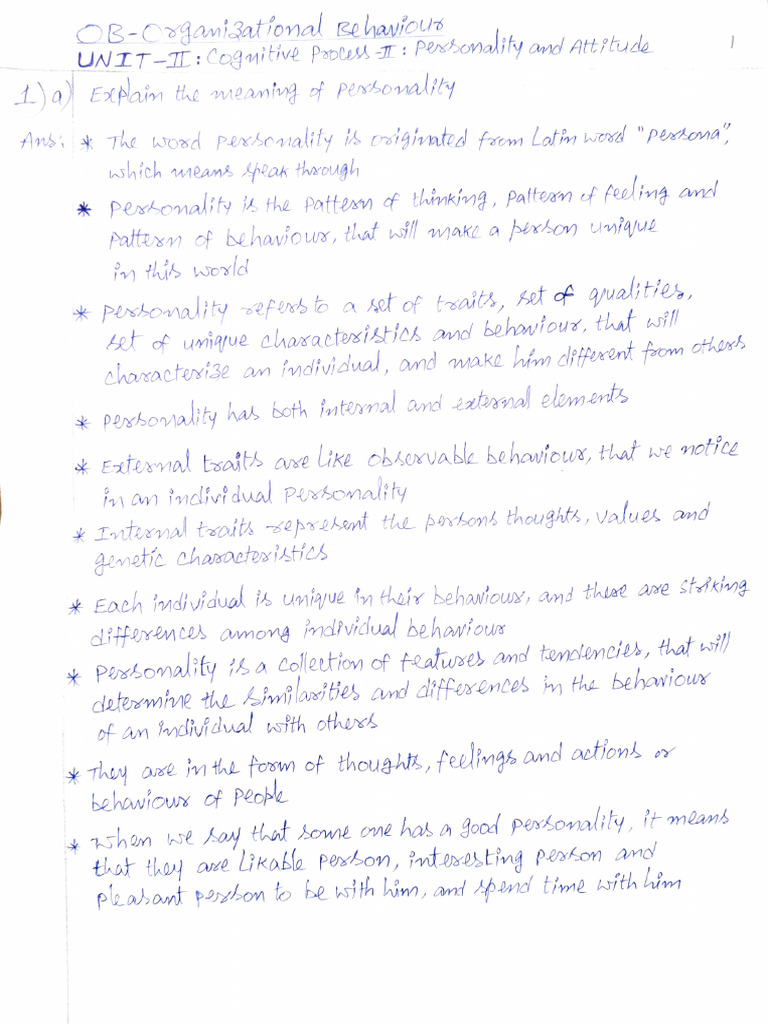 OB-Organizational Behaviour
UNIT-II: Cognitive Process-II: Personality and Attitude
1
1) a) Explain the meaning of personality
Ans: * The word personality is originated from Latin word "persona",
which means speak through
* Personality is the pattern of thinking, pattern of feeling and
pattern of behaviour, that will make a person unique
in this world
* Personality refers to a set of traits, set of qualities,
set of unique characteristics and behaviour, that will
characterize an individual, and make him different from others
* Personality has both internal and external elements
* External traits are like observable behaviour, that we notice
in an individual personality
* Internal traits represent the persons thoughts, values and
genetic characteristics
* Each individual is unique in their behaviour, and there are striking
differences among individual behaviour
* Personality is a collection of features and tendencies, that will
determine the similarities and differences in the behaviour
of an individual with others
* They are in the form of thoughts, feelings and actions or
behaviour of people
* When we say that some one has a good personality, it means
that they are likable person, interesting person and
pleasant person to be with him, and spend time with him